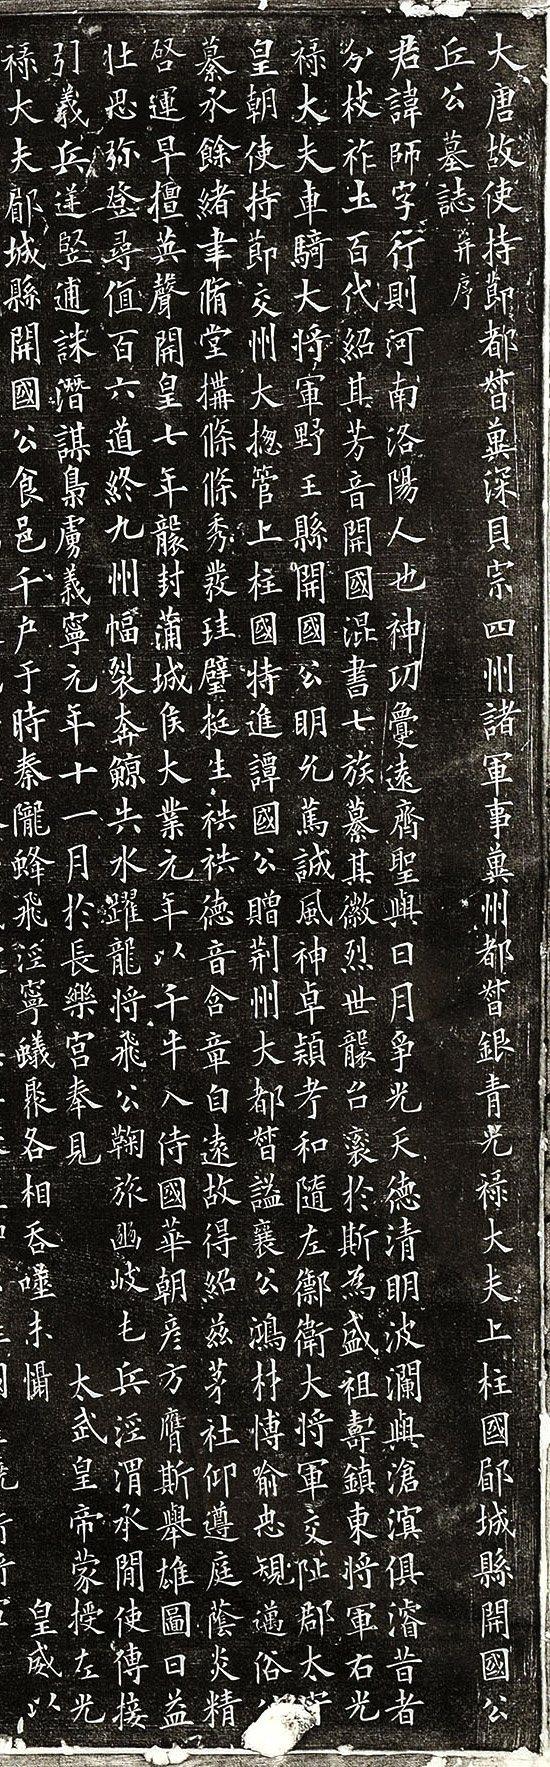 大唐故使持節都督冀深貝宗四州諸軍事冀州都督銀青光祿大夫上柱國郿城縣開國公
丘公墓誌并序
君諱師字行則河南洛陽人也神功敻遠齊聖與日月爭光天德清明波瀾與滄溟俱濬昔者
分枝祚土百代紹其芳音開國混書七族纂其徽烈世襲台袞於斯為盛祖壽鎮東將軍右光
祿大夫車騎大將軍野王縣開國公明允篤誠風神卓穎考和隨左禦衛大將軍交阯郡太守
皇朝使持節交州大捴管上柱國特進譚國公贈荊州大都督謚襄公鴻材博喻忠規邁俗公
纂承餘緒聿脩堂搆條條秀發珪璧挺生祑祑德音含章自遠故得紹茲茅社仰遵庭蔭炎精
啓運早擅英聲開皇七年襲封蒲城侯大業元年以千牛入侍國華朝彥方膺斯舉雄圖日益
壯思弥登尋值百六道終九州幅裂奔鯨共水躍龍將飛公鞠旅豳岐乇兵涇渭承閒使傳接
引義兵逆竪逋誅潛謀梟虜義寧元年十一月於長樂宮奉見 太武皇帝蒙授左光
祿大夫郿城縣開國公食邑千户于時秦隴蜂飛涇寧蟻聚各相吞噬未懾 皇威以